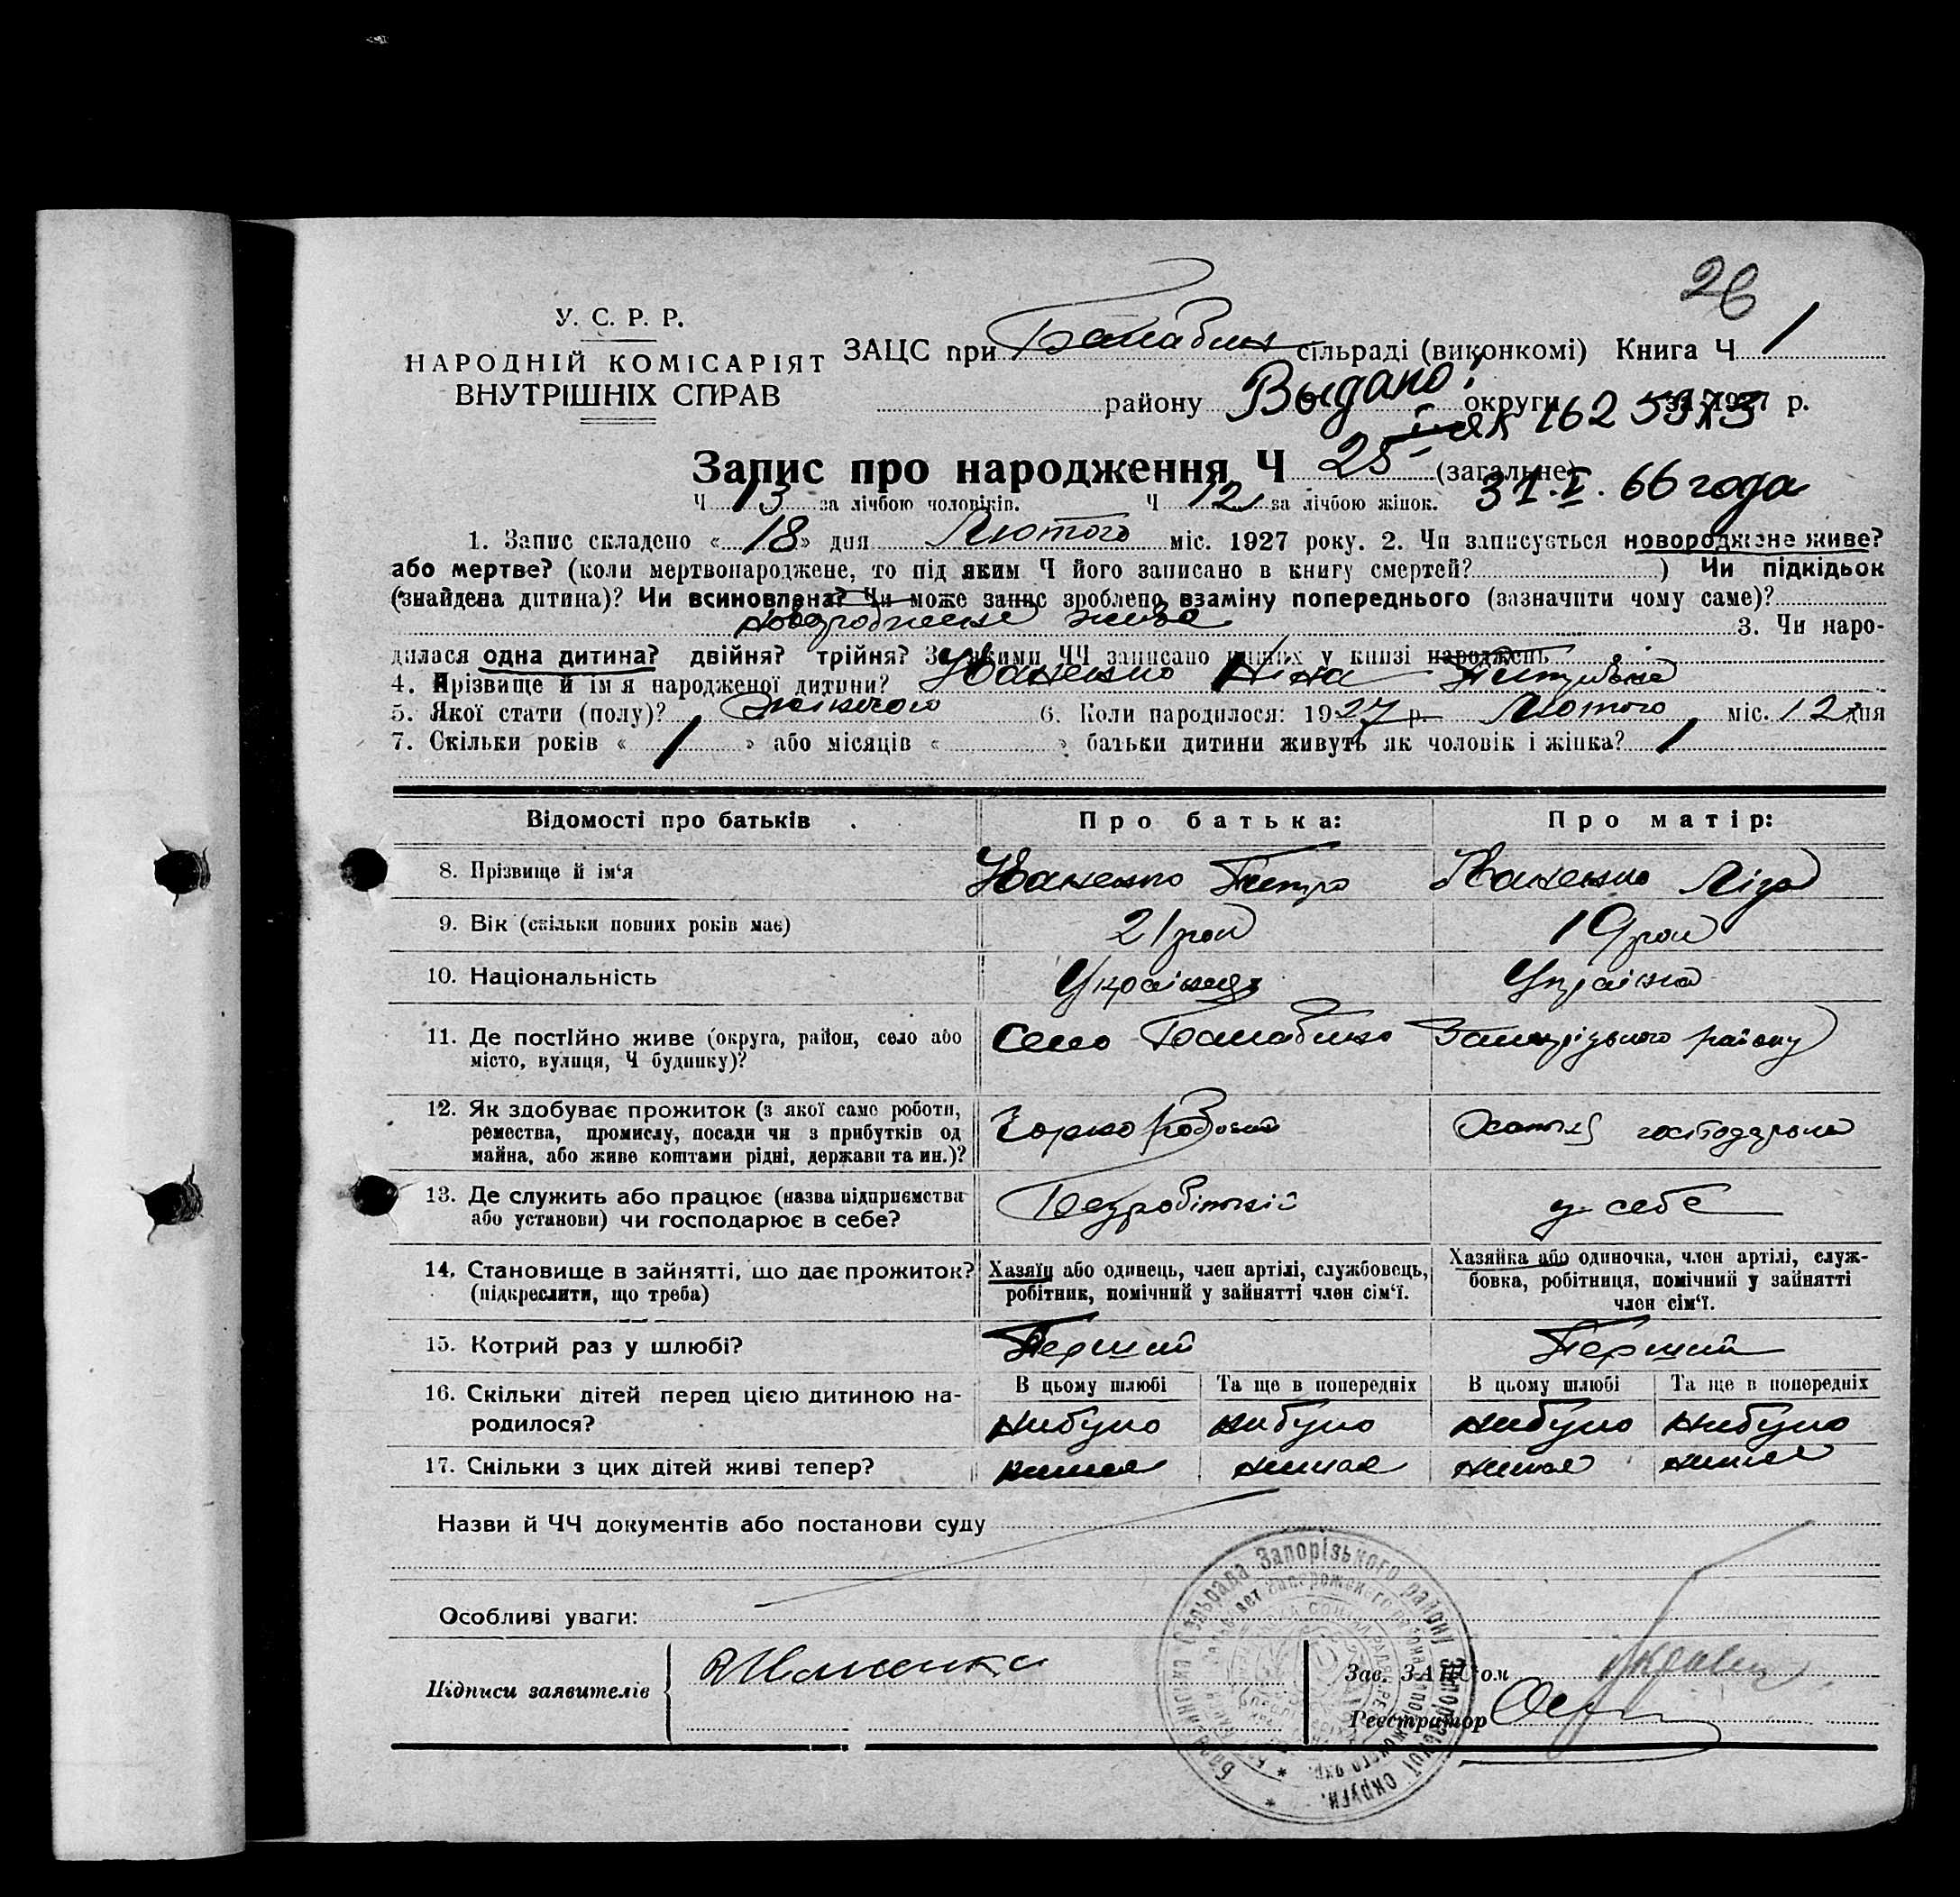 26
У. С. Р. Р.
НАРОДНІЙ КОМІСАРІЯТ
ВНУТРІШНІХ СПРАВ
ЗАЦС при Балабин сільраді (виконкомі) Книга Ч 1
району округи 1927 р.
Выдано!
162 5373
31.I. 66 года
Запис про народження Ч 25 (загальне)
Ч 13 за лічбою чоловіків. Ч 12 за лічбою жінок.
1. Запис складено « 18 » дня Лютого міс. 1927 року. 2. Чи записується новороджене живе?
або мертве? (коли мертвонароджене, то під яким Ч його записано в книгу смертей? ) Чи підкідьок
(знайдена дитина)? Чи всиновлена? Чи може запис зроблено взаміну попереднього (зазначити чому саме)?
новороджене живе 3. Чи наро-
дилася одна дитина? двійня? трійня? За якими ЧЧ записано инших у книзі народжень
4. Прізвище й ім'я народженої дитини? Ніна Петрівна
5. Якої стати (полу)? Жіночого 6. Коли народилося: 1927 р. Лютого міс. 12 дня
7. Скільки років « 1 » або місяців « » батьки дитини живуть як чоловік і жінка? 1
Відомості про батьків Про батька: Про матір:
8. Прізвище й ім'я Петро Ліза
9. Вік (скільки повних років має) 21 рок 19 рок
10. Національність Українець Українка
11. Де постійно живе (округа, район, село або Село Балабино Запорізького району
місто, вулиця, Ч будинку)?
12. Як здобуває прожиток (з якої саме роботи,
ремества, промислу, посади чи з прибутків од Чорноробочий Хатня господарка
майна, або живе коштами рідні, держави та ин.)?
13. Де служить або працює (назва підприємства Безробітній у себе
або установи) чи господарює в себе?
14. Становище в зайнятті, що дає прожиток?
(підкреслити, що треба)
Хазяїн або одинець, член артілі, службовець,
робітник, помічний у зайнятті член сім'ї.
Хазяйка або одиночка, член артілі, служ-
бовка, робітниця, помічний у зайнятті
член сім'ї.
15. Котрий раз у шлюбі? Перший Перший
16. Скільки дітей перед цією дитиною на-
родилося?
В цьому шлюбі Та ще в попередніх В цьому шлюбі Та ще в попередніх
небуло небуло небуло небуло
17. Скільки з цих дітей живі тепер? немає немає немає немає
Назви й ЧЧ документів або постанови суду
Особливі уваги:
Підписи заявителів
Зав. ЗАЦСом
Реєстратор
Балабинська Сільрада Запорізького району Запорізької округи.